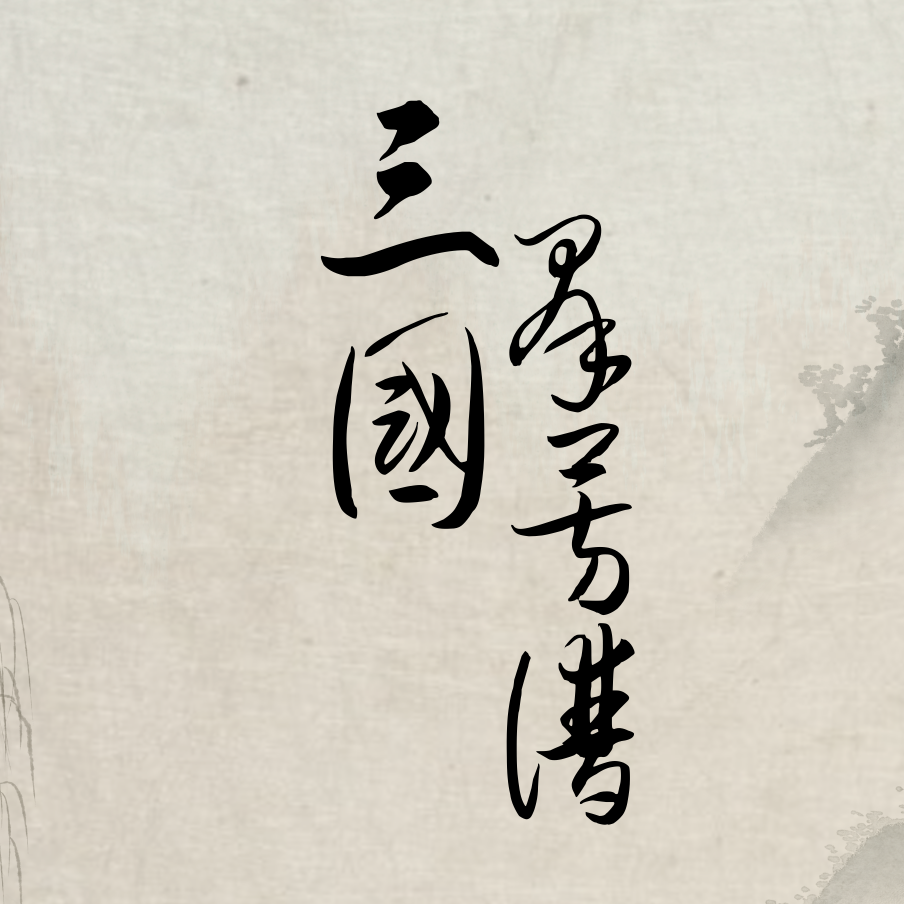 三國
群芳譜